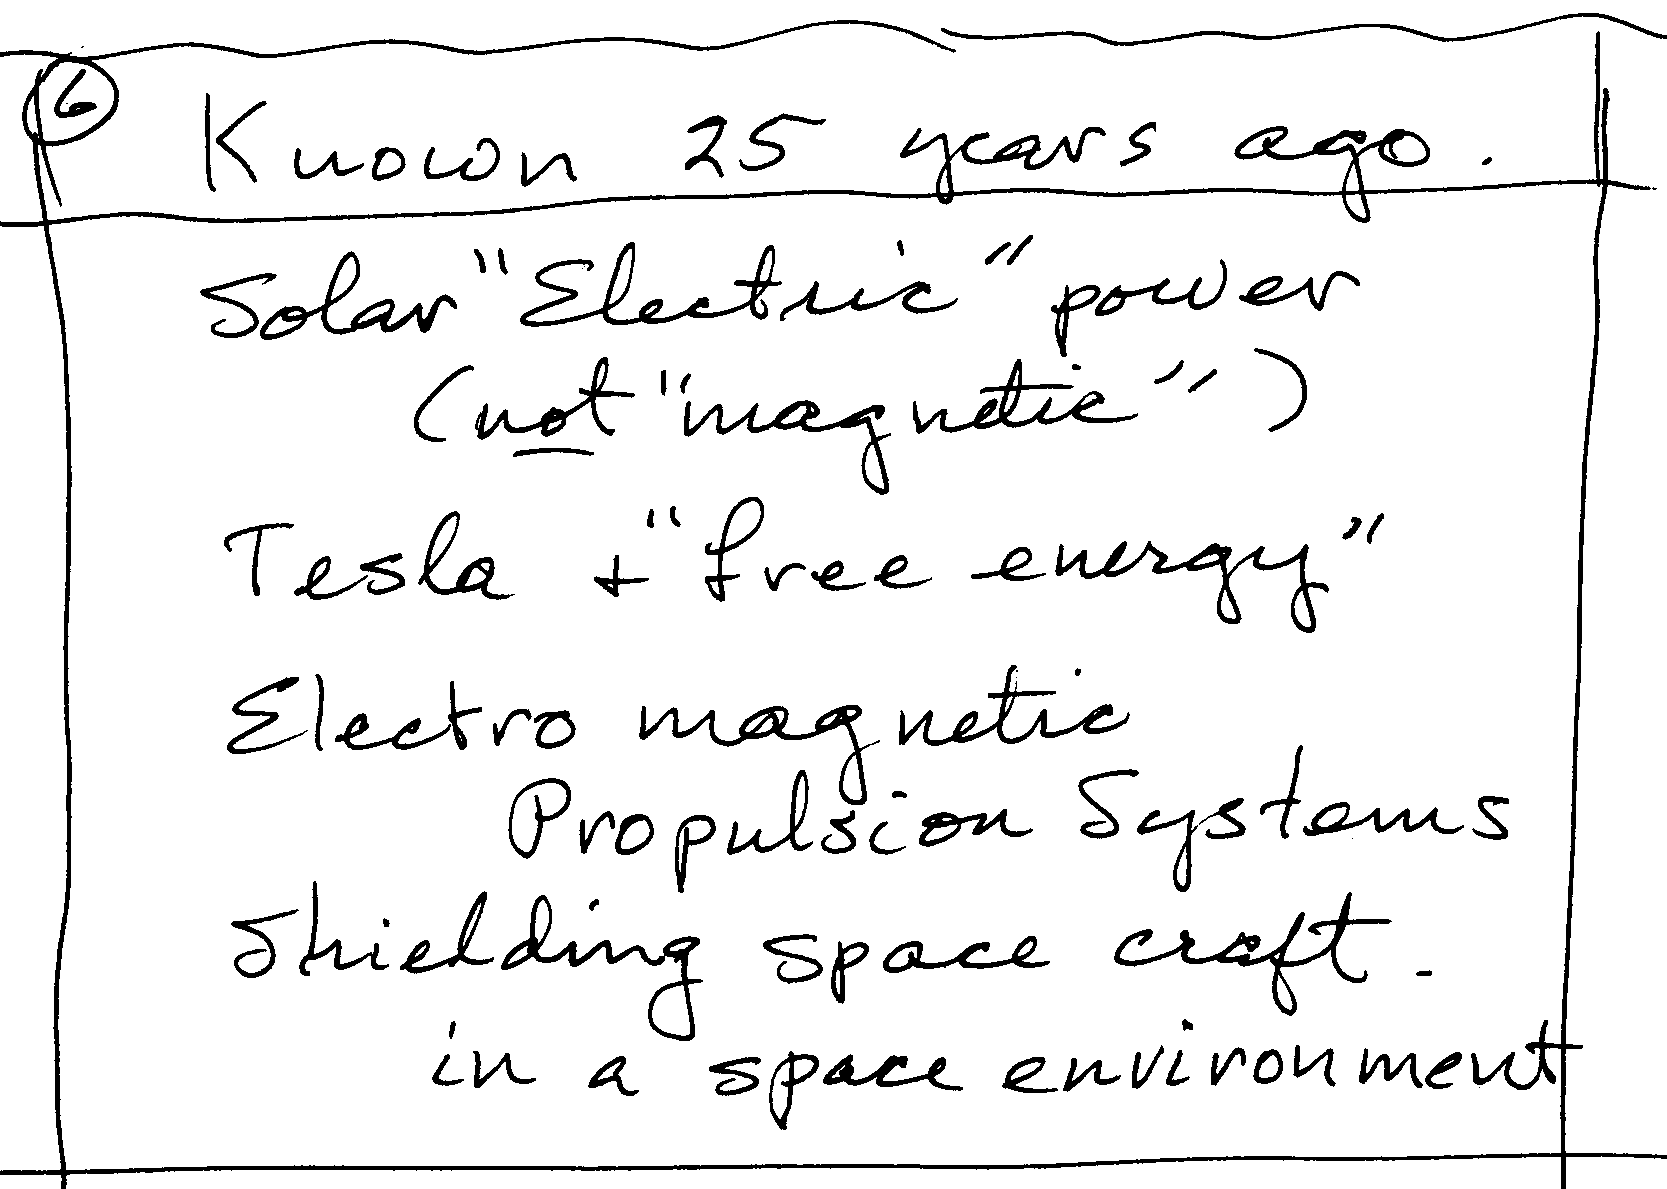 6
Known 25 years ago.
Solar "Electric" power
(not "magnetic")
Tesla + "free energy"
Electro magnetic
Propulsion Systems
Shielding space craft.
in a space environment